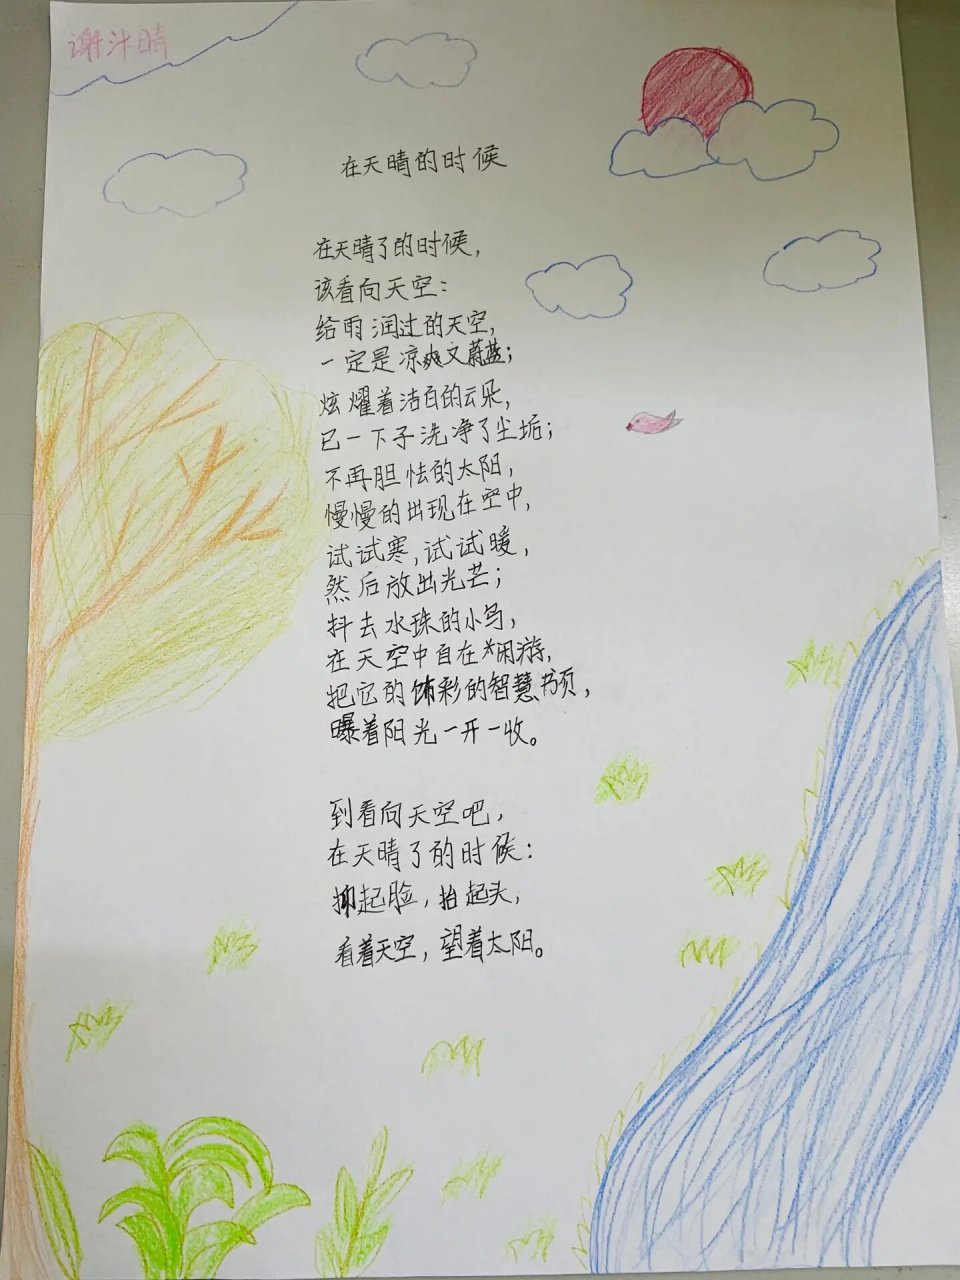 谢沐晴
在天晴的时候
在天晴了的时候，
该看向天空：
给雨润过的天空，
一定是凉爽又蔚蓝；
炫耀着洁白的云朵，
已一下子洗净了尘垢；
不再胆怯的太阳，
慢慢的出现在空中，
试试寒，试试暖，
然后放出光芒；
抖去水珠的小鸟，
在天空中自在闲游，
把它的饰彩的智慧书页，
曝着阳光一开一收。
到看向天空吧，
在天晴了的时候：
抑起脸，抬起头，
看着天空，望着太阳。